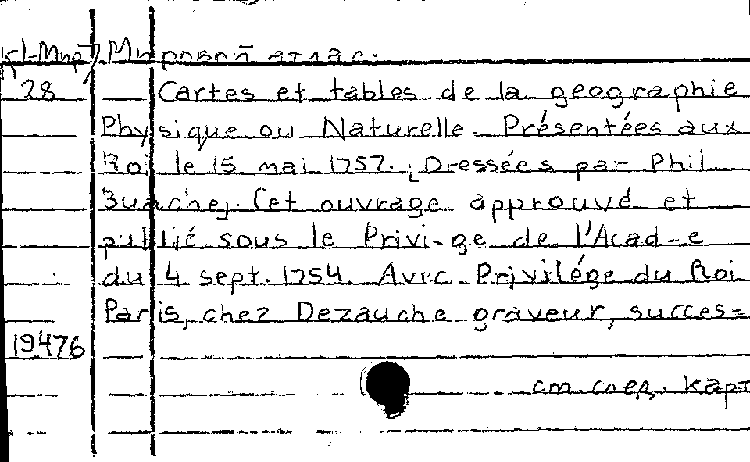 Мировой атлас.
28 Cartes et tables de la geographie
Physique ou Naturelle. Présentées aux
Roi le 15 mai 1757. Dressées par Phil
Buache. Cet ouvrage approuvé et
publié sous le Privi-ge de l'Acad-e
du 4 sept. 1754. Avec Privilége du Roi
Paris, chez Dezauche graveur, succes=
19476
см. след. карт